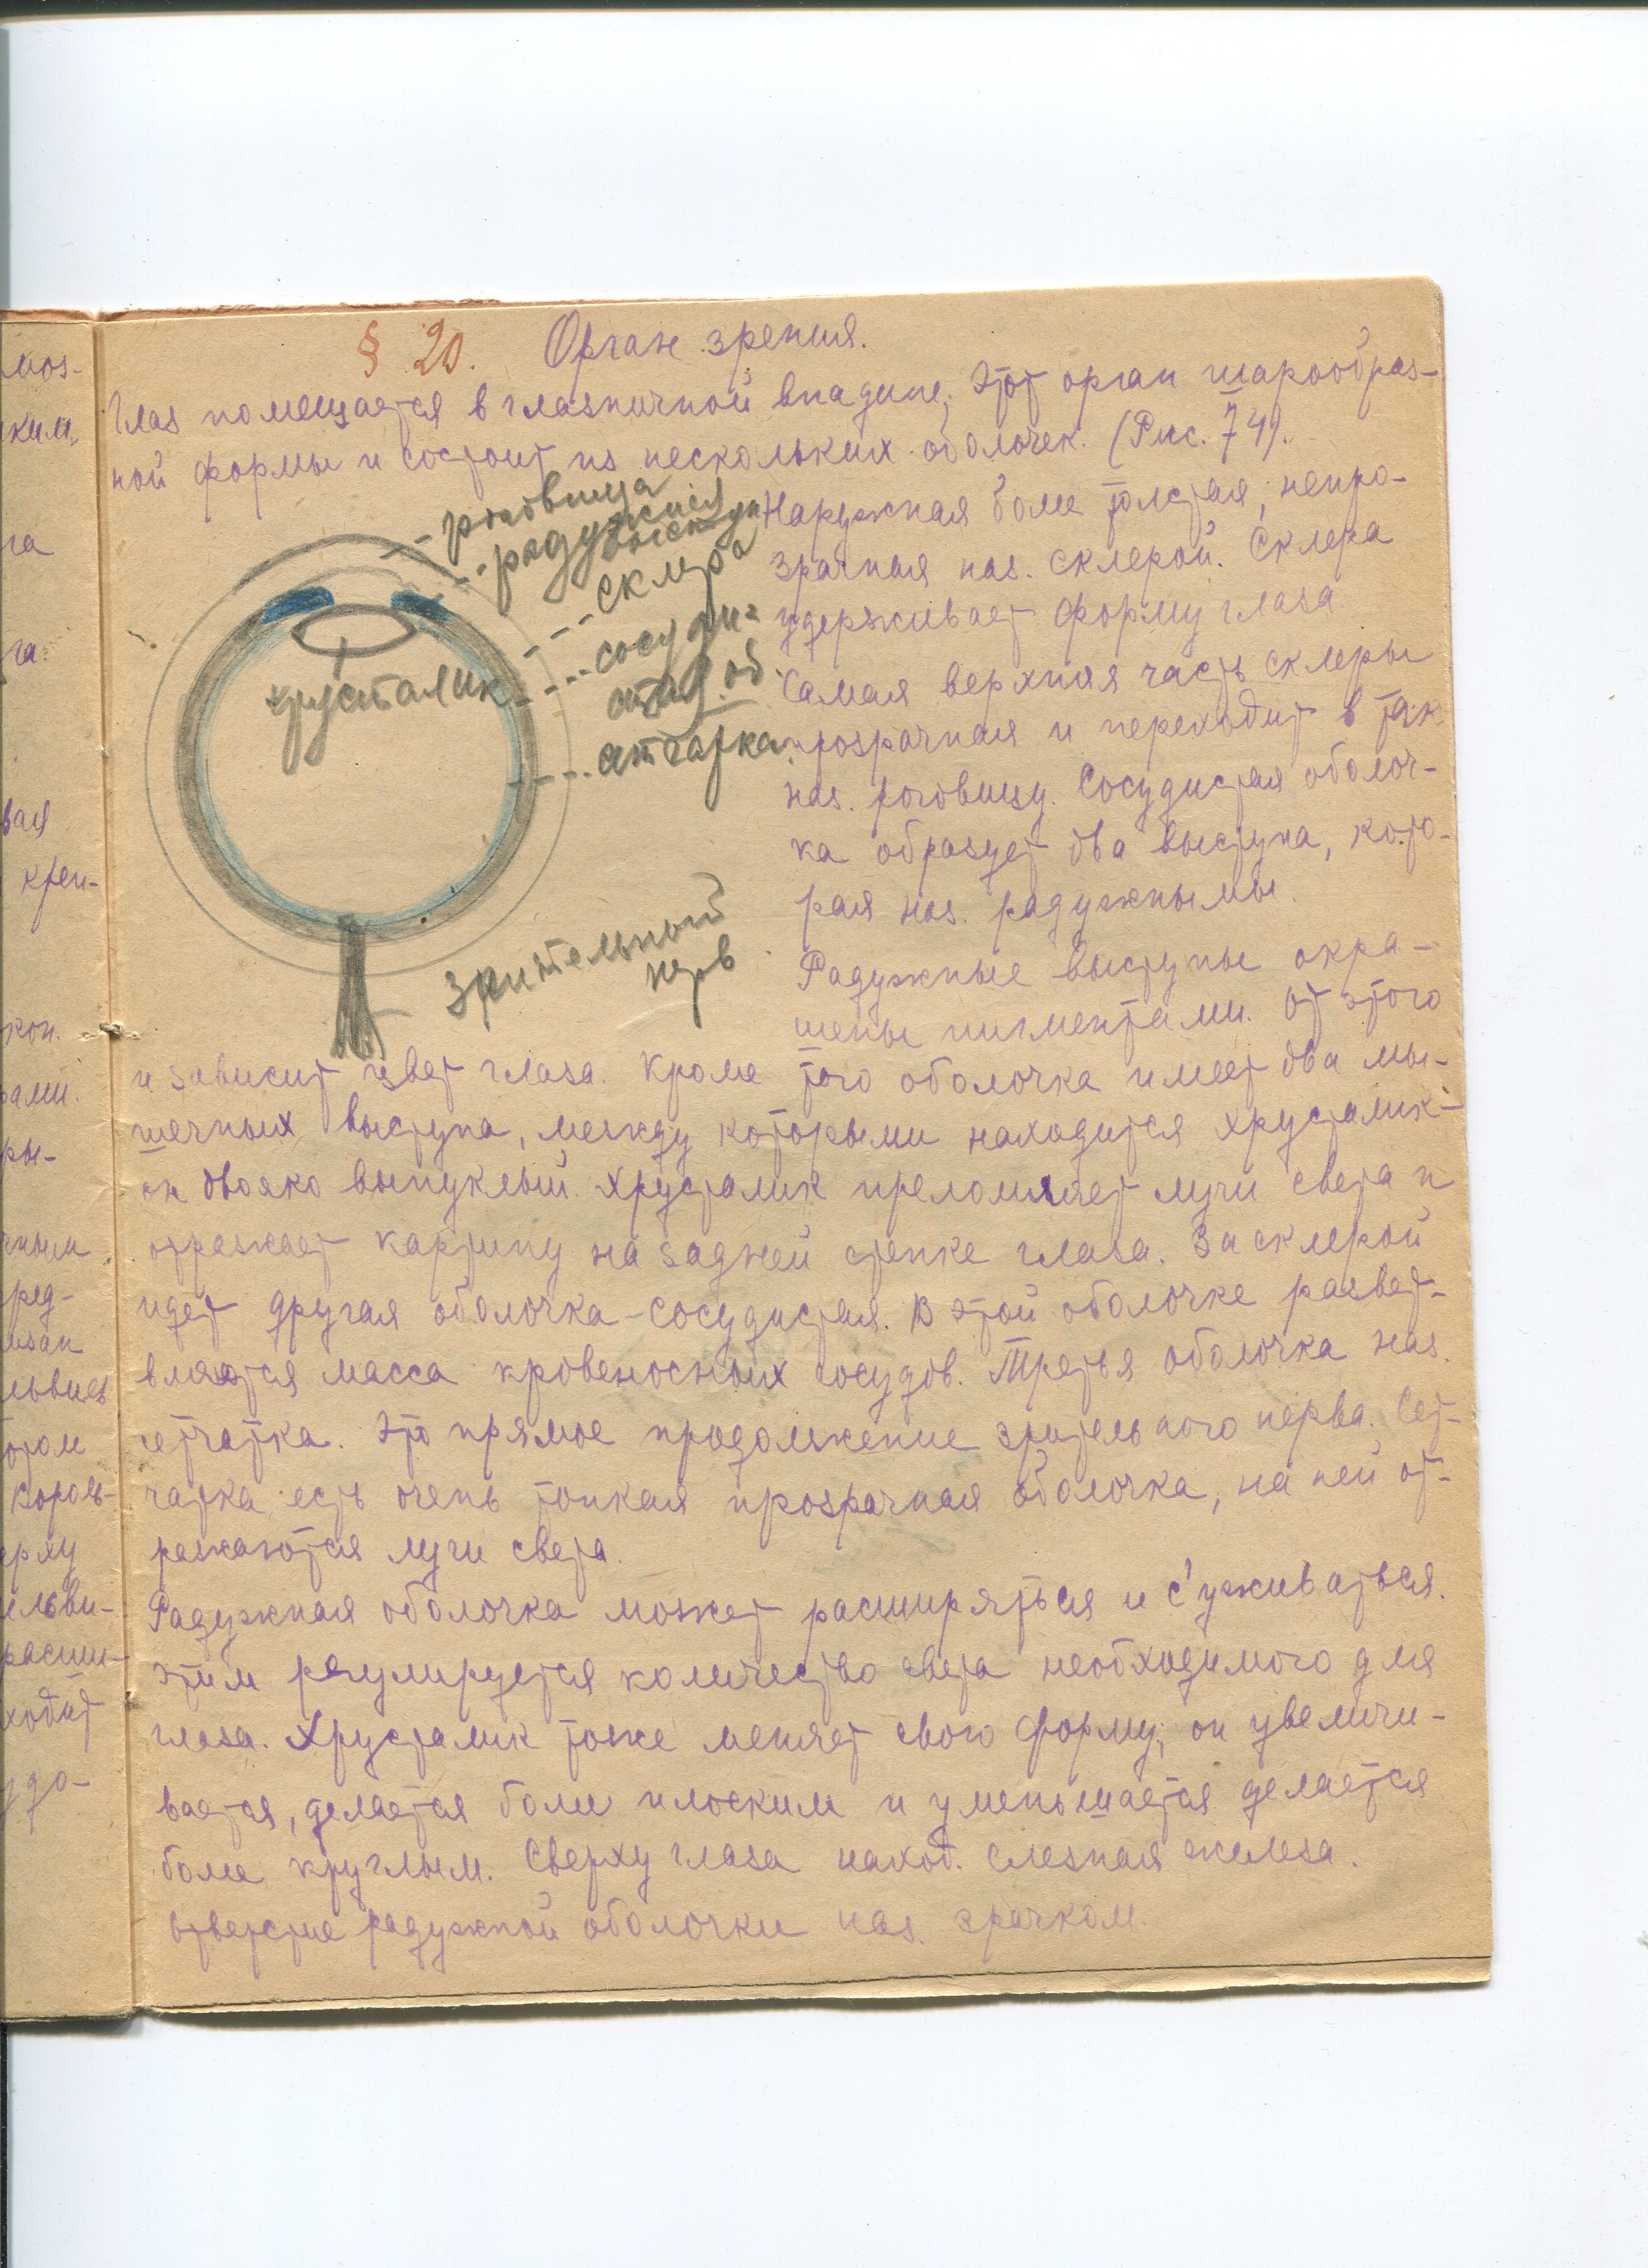 § 20. Орган зрения.
Глаз помещается в глазничной впадине. Этот орган шарообраз-
ной формы и состоит из нескольких оболочек. (Рис. 74).
роговица
радужный
выступ
склера
сосуди-
стая об.
сетчатка
хрусталик
зрительный
нерв
Наружная более толстая, непро-
зрачная наз. склерой. Склера
удерживает форму глаза.
Самая верхняя часть склеры
прозрачная и переходит в так
наз. роговицу. Сосудистая оболоч-
ка образует два выступа, кото-
рая наз. радужными.
Радужные выступы окра-
шены пигментами. От этого
и зависит цвет глаза. Кроме того оболочка имеет два мы-
шечных выступа, между которыми находится хрусталик-
он двояко выпуклый. Хрусталик преломляет лучи света и
отражает картину на задней стенке глаза. За склерой
идет другая оболочка-сосудистая. В этой оболочке развет-
вляются масса кровеносных сосудов. Третья оболочка наз.
сетчатка. Это прямое продолжение зрительного нерва. Сет-
чатка есть очень тонкая прозрачная оболочка, на ней от-
ражаются лучи света.
Радужная оболочка может расширяться и с'уживаться.
Этим регулируется количество света необходимого для
глаза. Хрусталик тоже меняет свою форму, он увеличи-
вается, делается более плоским и уменьшается делается
более круглым. Сверху глаза наход. слезная железа.
Отверстие радужной оболочки наз. зрачком.
моз-
ким,
га
га.
вая
креп-
кон.
рами.
ры-
чным
ред-
ловцев
отом
Король-
ерху
ельви-
расши-
ходит
удо-